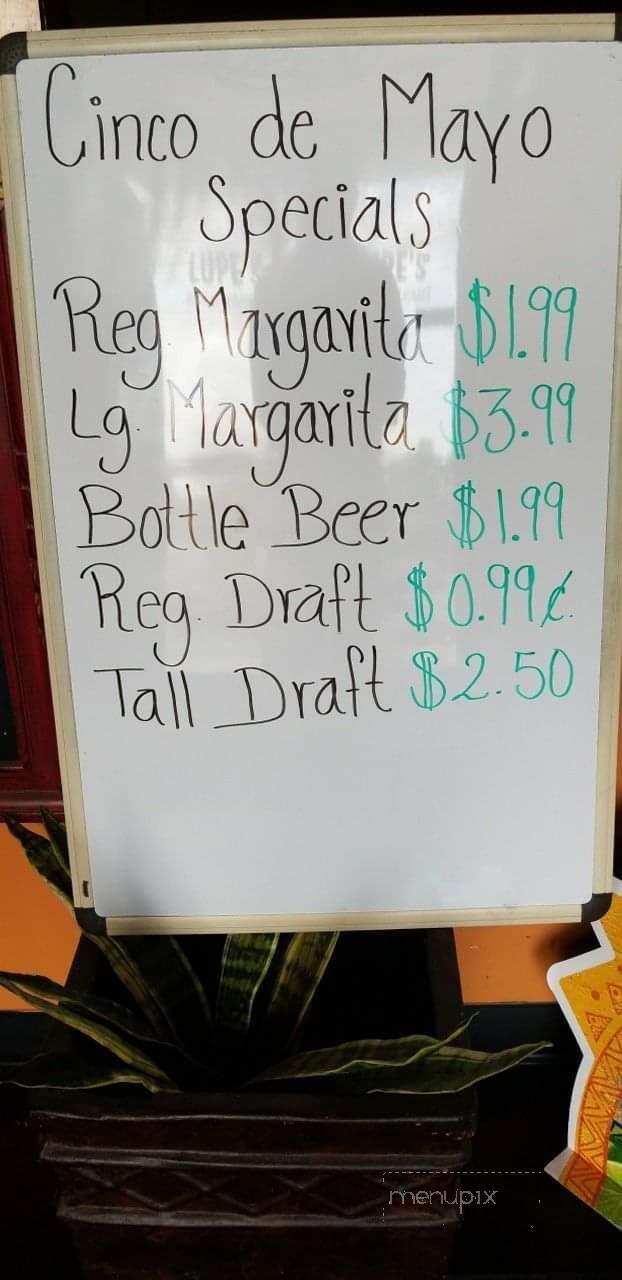 Cinco de Mayo
Specials
Reg. Margarita $1.99
Lg. Margarita $3.99
Bottle Beer $1.99
Reg. Draft $0.99¢
Tall Draft $2.50
menupix